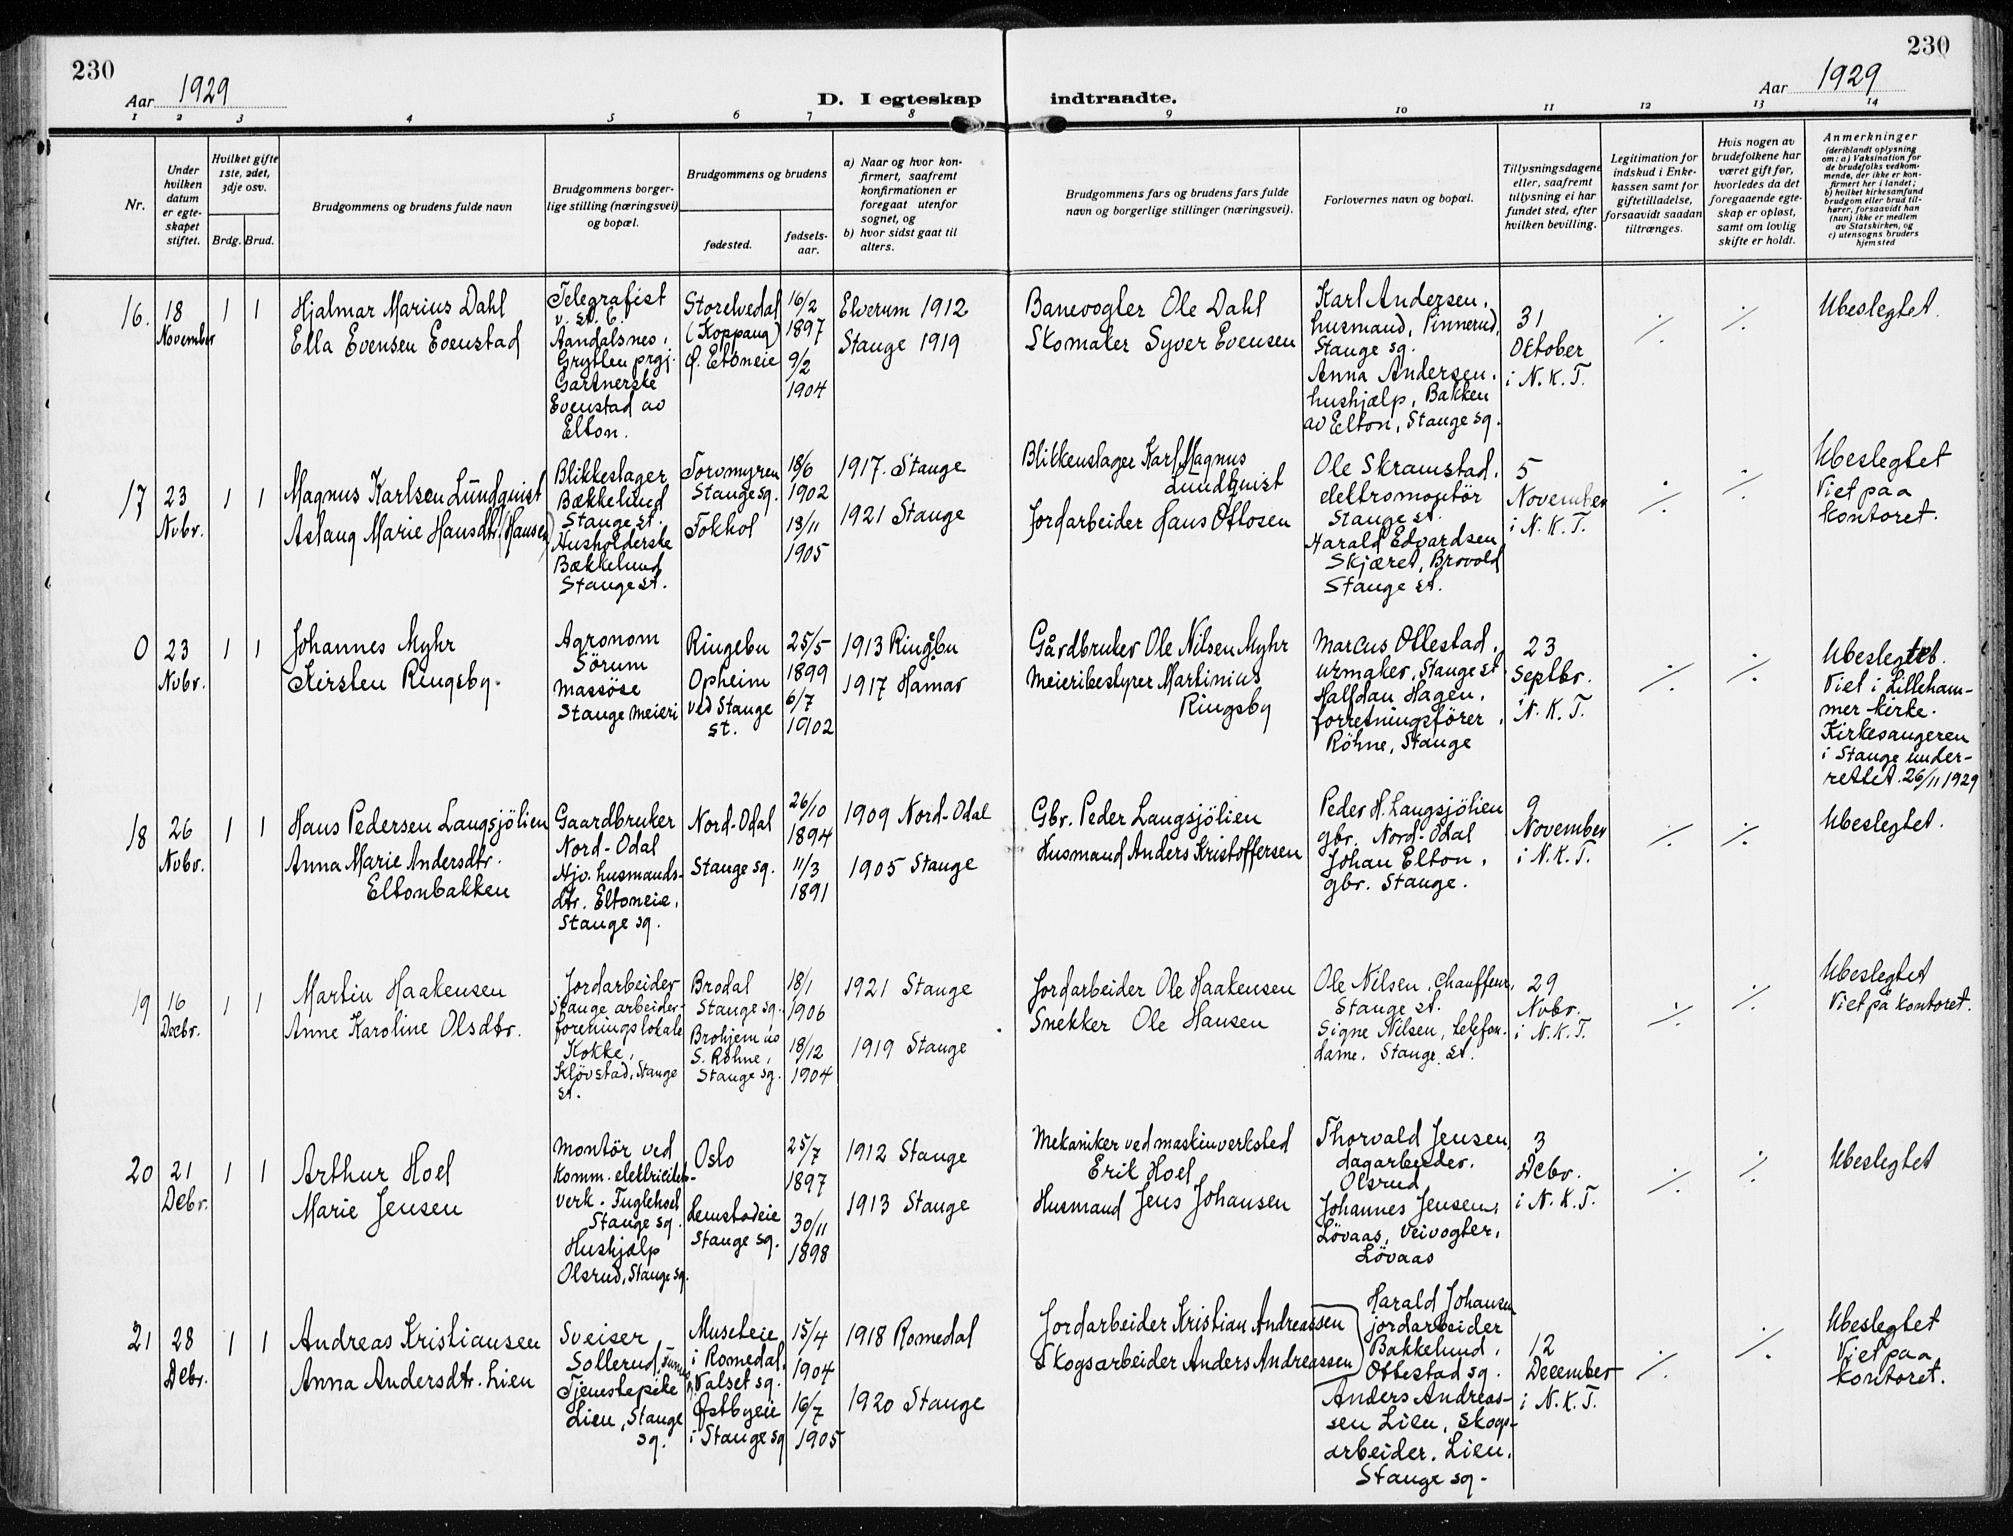 230
Aar 1929
D. I egteskap indtraadte.
Aar 1929
230
1 2 3 4 5 6 7 8 9 10 11 12 13 14
Nr.
Under
hvilken
datum
er egte-
skapet
stiftet.
Hvilket gifte
1ste, 2det,
3dje osv.
Brdg. Brud.
Brudgommens og brudens fulde navn
Brudgommens borger-
lige stilling (næringsvei)
og bopæl.
Brudgommens og brudens
fødested.
fødsels-
aar.
a) Naar og hvor kon-
firmert, saafremt
konfirmationen er
foregaat utenfor
sognet, og
b) hvor sidst gaat til
alters.
Brudgommens fars og brudens fars fulde
navn og borgerlige stillinger (næringsvei).
Forlovernes navn og bopæl.
Tillysningsdagene
eller, saafremt
tillysning ei har
fundet sted, efter
hvilken bevilling.
Legitimation for
indskud i Enke-
kassen samt for
giftetilladelse,
forsaavidt saadan
tiltrænges.
Hvis nogen av
brudefolkene har
været gift før,
hvorledes da det
foregaaende egte-
skap er opløst,
samt om lovlig
skifte er holdt.
Anmerkninger
(deriblandt oplysning
om: a) Vaksination for
de brudefolks vedkom-
mende, der ikke er kon-
firmert her i landet;
b) hvilket kirkesamfund
brudgom eller brud til-
hører, forsaavidt han
(hun) ikke er medlem
av Statskirken, og
c) utensogns bruders
hjemsted
16.
18
November
1 1
Hjalmar Marius Dahl
Ella Evensen Evenstad
Telegrafist
v. st. B.
Aandalsnes,
Grytten prgj.
Gartnerske
Evenstad av
Elton.
Storelvedal
(Koppang)
Ø. Eltoneie
16/2
1897
9/2
1904
Elverum 1912
Stange 1919
Banevogter Ole Dahl
Skomaker Syver Evensen
Karl Andersen,
husmand, Pinnerud,
Stange sg.
Anna Andersen,
hushjælp, Bakken
av Elton, Stange sg.
31
Oktober
i N. K. T.
⁒ ⁒
Ubeslegtet.
17
23
Nvbr.
1 1
Magnus Karlsen Lundquist
Aslaug Marie Hansdtr. (Hansen)
Blikkeslager
Bækkelund
Stange st.
Husholderske
Bækkelund
Stange st.
Torvmyren
Stange sg.
Tokhol
18/6
1902
18/11
1905
1917. Stange
1921 Stange
Blikkenslager Karl Magnus
Lundquist
Jordarbeider Hans Ottosen
Ole Skramstad,
elektromontör
Stange st.
Harald Edvardsen
Skjæret, Brovold
Stange st.
5
November
i N. K. T.
⁒ ⁒
Ubeslegtet
Viet paa
kontoret.
0
23
Nvbr.
1 1
Johannes Myhr
Kirsten Ringsby.
Agronom
Sörum
Massöse
Stange meieri
Ringebu
Opheim
ved Stange
st.
25/5
1899
6/7
1902
1913 Ringebu
1917 Hamar
Gårdbruker Ole Nilsen Myhr
Meieribestyrer Martinius
Ringsby
Marcus Ottestad,
urmaker, Stange st.
Halfdan Hagen,
forretningsförer,
Röhne, Stange
23
Septbr.
i N. K. T.
⁒ ⁒
Ubeslegtet.
Viet i Lilleham-
mer kirke.
Kirkesangeren
i Stange under-
rettet. 26/11 1929
18
26
Nvbr.
1 1
Hans Pedersen Langsjölien
Anna Marie Andersdtr.
Eltonbakken
Gaardbruker
Nord-Odal
Hjv. husmands-
dtr. Eltoneie,
Stange sg.
Nord-Odal
Stange sg.
26/10
1894
11/3
1891
1909 Nord-Odal
1905 Stange
Gbr. Peder Langsjölien
Husmand Anders Kristoffersen
Peder H. Langsjölien
gbr. Nord-Odal
Johan Elton,
gbr. Stange.
9
November
i N. K. T.
⁒ ⁒
Ubeslegtet.
19
16
Decbr.
1 1
Martin Haakensen
Anne Karoline Olsdtr.
Jordarbeider
Stange arbeider-
foreningslokale
Kokke,
Klövstad, Stange
st.
Brodal
Stange sg.
Brohjem av
S. Röhne,
Stange sg.
18/1
1906
18/12
1904
1921 Stange
1919 Stange
Jordarbeider Ole Haakensen
Snekker Ole Hansen
Ole Nilsen, Chauffeur,
Stange st.
Signe Nilsen, telefon-
dame. Stange st.
29
Nvbr.
i N. K. T.
⁒ ⁒
Ubeslegtet
Viet på kontoret.
20
21
Debr.
1 1
Arthur Hoel
Marie Jensen
Montör ved
komm. elektricitets-
verk. Fuglehset
Stange sg.
Hushjælp
Olsrud, Stange sg.
Oslo
Lemstadeie
Stange sg.
25/7
1897
30/11
1898
1912 Stange
1913 Stange
Mekaniker ved maskinverksted
Erik Hoel
Husmand Jens Johansen
Thorvald Jensen,
dagarbeider.
Olsrud
Johannes Jensen,
Lövaas, Veivogter,
Lövaas
3
Debr.
i N. K. T.
⁒ ⁒
Ubeslegtet
21
28
Debr.
1 1
Andreas Kristiansen
Anna Andersdtr. Lien
Sveiser,
Sollerud,
Tjenestepike
Lien, Stange
sg.
Museteie
i Romedal,
Valset sg.
Østbyeie
i Stange sg
15/4
1904
16/7
1905
1918 Romedal
1920 Stange
Jordarbeider Kristian Andreassen
Skogsarbeider Anders Andreassen
Harald Johansen
jordarbeider
Bakkelund,
Ottestad sg.
Anders Andreas-
sen Lien, Skogs-
arbeider. Lien.
Stange sg.
12
December
i N. K. T.
⁒ ⁒
Ubeslegtet
Viet paa
kontoret.